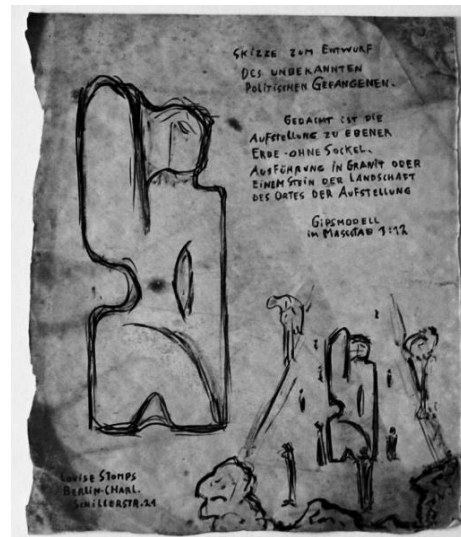 SKIZZE ZUM ENTWURF
DES UNBEKANNTEN
POLITISCHEN GEFANGENEN.
GEDACHT IST DIE
AUFSTELLUNG ZU EBENER
ERDE - OHNE SOCKEL.
AUSFÜHRUNG IN GRANIT ODER
EINEM STEIN DER LANDSCHAFT
DES ORTES DER AUFSTELLUNG
GIPSMODELL
IM MASSSTAB 1:12
LOUISE STOMPS
BERLIN-CHARL.
SCHILLERSTR. 21